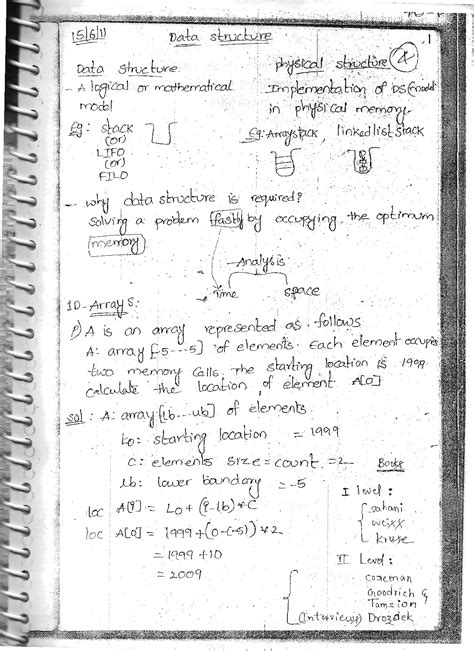 15/6/11
Data structure
1
Data structure
physical structure
- A logical or mathematical
model
Implementation of DS (model)
in physical memory.
Eg: stack
(or)
LIFO
(or)
FILO
Eg: Array stack, linked list stack
- why data structure is required?
solving a problem fastly by occupying the optimum
memory
Analysis
Time space
1D - Arrays:
P) A is an array represented as follows
A: array [-5---5] of elements. Each element occupies
two memory cells, the starting location is 1999
calculate the location of element A[0]
sol: A: array [lb...ub] of elements
Lo: starting location = 1999
C: elements size = count = 2
lb: lower boundary = -5
loc A[i] = Lo + (i-lb)*C
loc A[0] = 1999 + (0-(-5)) * 2
= 1999 + 10
= 2009
Books
I level:
sahani
weixx
kruse
II Level:
coreman
Goodrich &
Tamzion
(Interviews) Drozdek